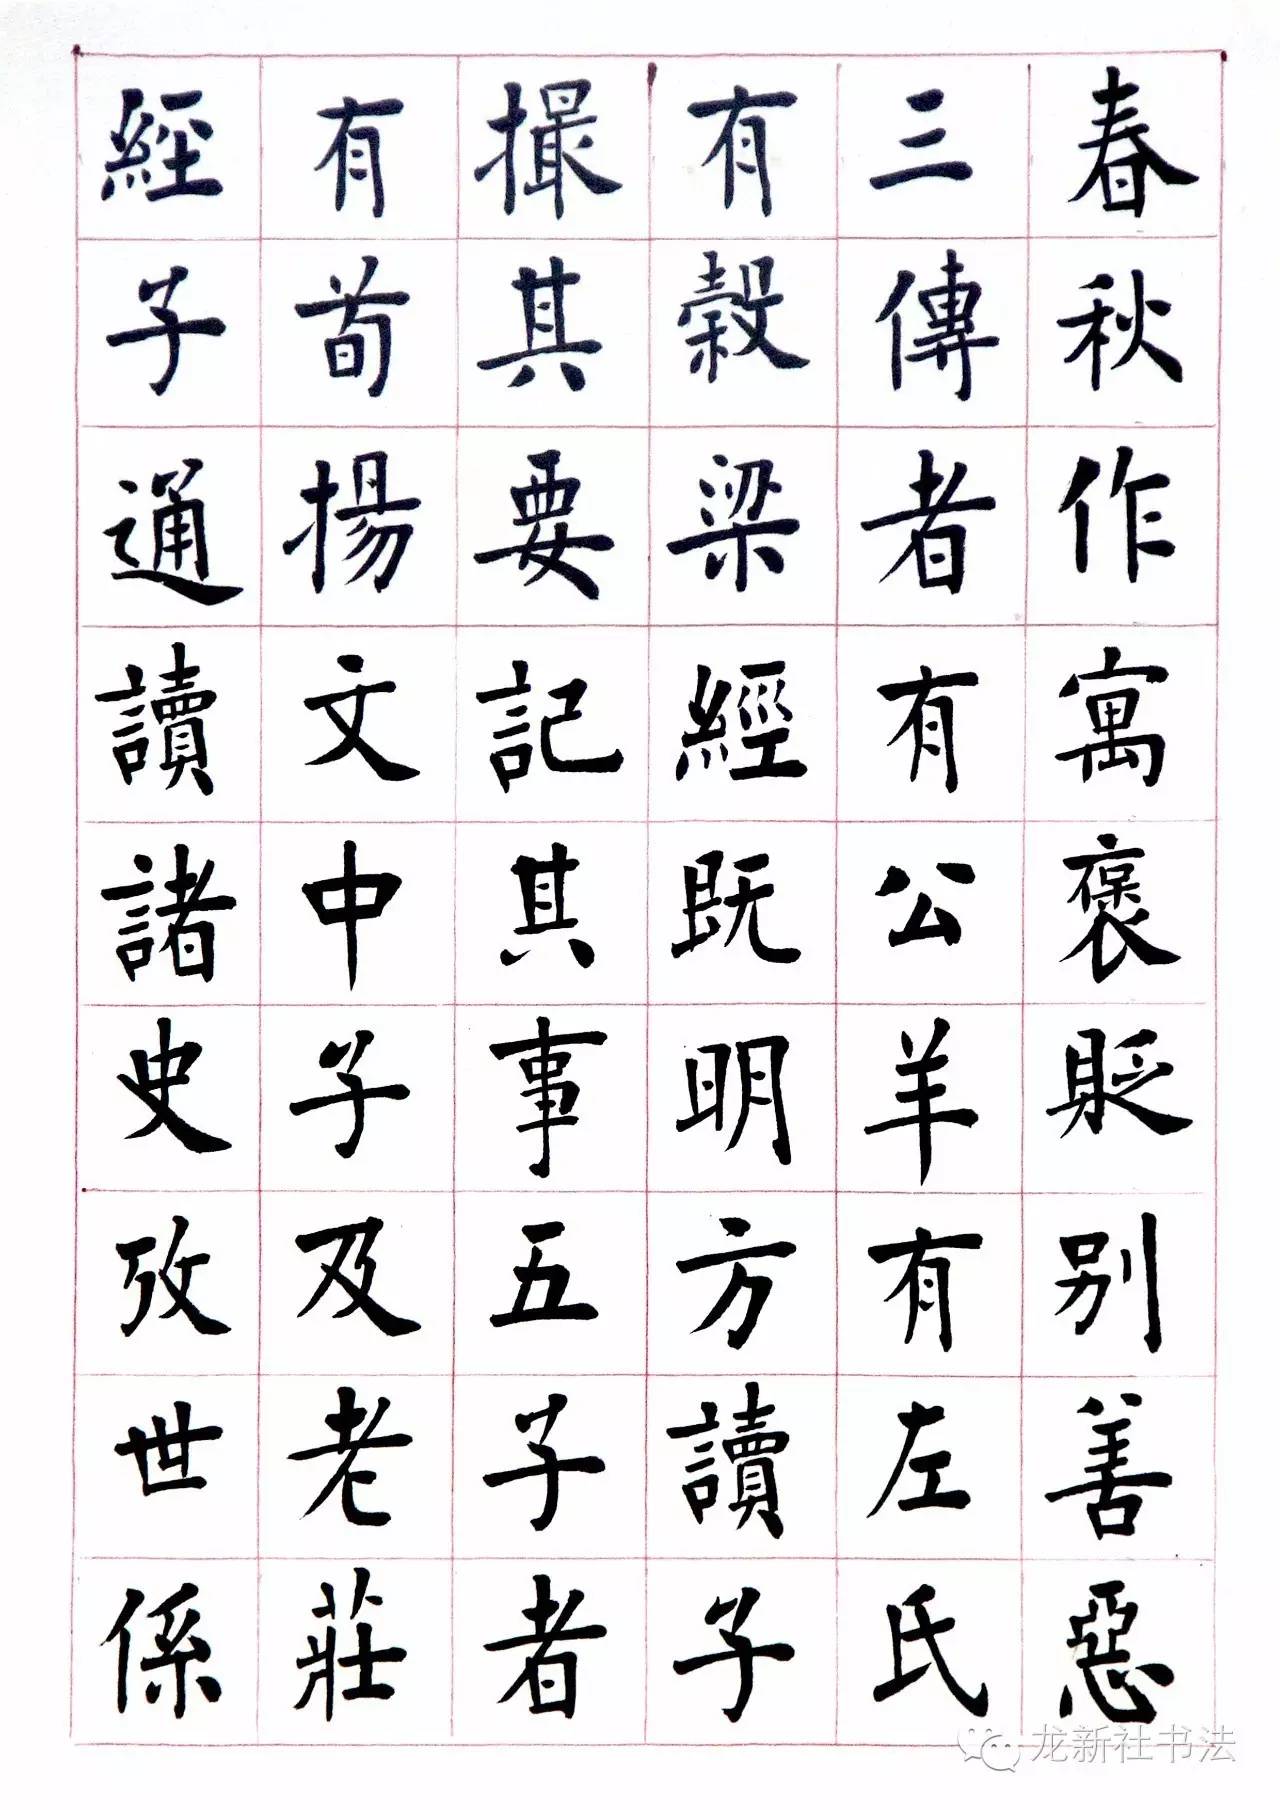 春秋作寓褒貶别善惡
三傳者有公羊有左氏
有穀梁經既明方讀子
撮其要記其事五子者
有荀揚文中子及老莊
經子通讀諸史攷世係
龙新社书法